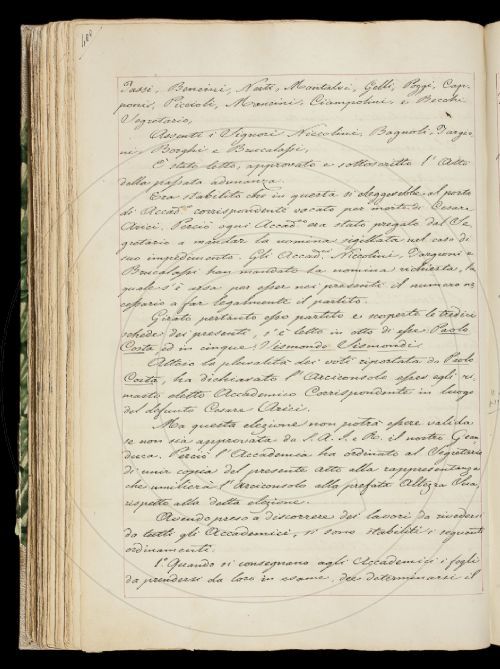 Tassi, Bencini, Nesti, Montalvi, Gelli, Poggi, Cap-
poni, Piccioli, Mancini, Ciampolini, e Becchi
Segretario,
Assenti i Signori Niccolini, Bagnoli, Targio-
ni, Borghi e Brucalassi,
E' stato letto, approvato e sottoscritto l'Atto
della passata adunanza.
Era stabilito che in questa si eleggesse al posto
di Accad.co corrispondente vacato per morte di Cesare
Arici. Perciò ogni Accad.co era stato pregato dal Se-
gretario a mandar la nomina sigillata nel caso di
suo impedimento. Gli Accad.ci Niccolini, Targioni e
Brucalassi han mandato la nomina richiesta, la
quale s'è essa per esser nei presenti il numero ne-
cessario a far legalmente il partito.
Girato pertanto esso partito e scoperte le tredici
schede dei presenti, s'è letto in otto di esse Paolo
Costa, ed in cinque Sismondo Sismondi.
Attesa la pluralità dei voti riportata da Paolo
Costa, ha dichiarato l'Arciconsolo esser egli ri-
masto eletto Accademico Corrispondente in luogo
del defunto Cesare Arici.
Ma questa elezione non potrà essere valida
se non sia approvata da S. A. I. e R. il nostro Gran-
duca. Perciò l'Accademia ha ordinato al Segretario
di unir copia del presente Atto alla rappresentanza
che umilierà l'Arciconsolo alla prefata Altezza Sua,
rispetto alla detta elezione.
Avendo preso a discorrere dei lavori da rivedersi
da tutti gli Accademici, si sono stabiliti i seguenti
ordinamenti.
1.° Quando si consegnano agli Accademici i fogli
da prendersi da loro in esame, dee determinarsi il